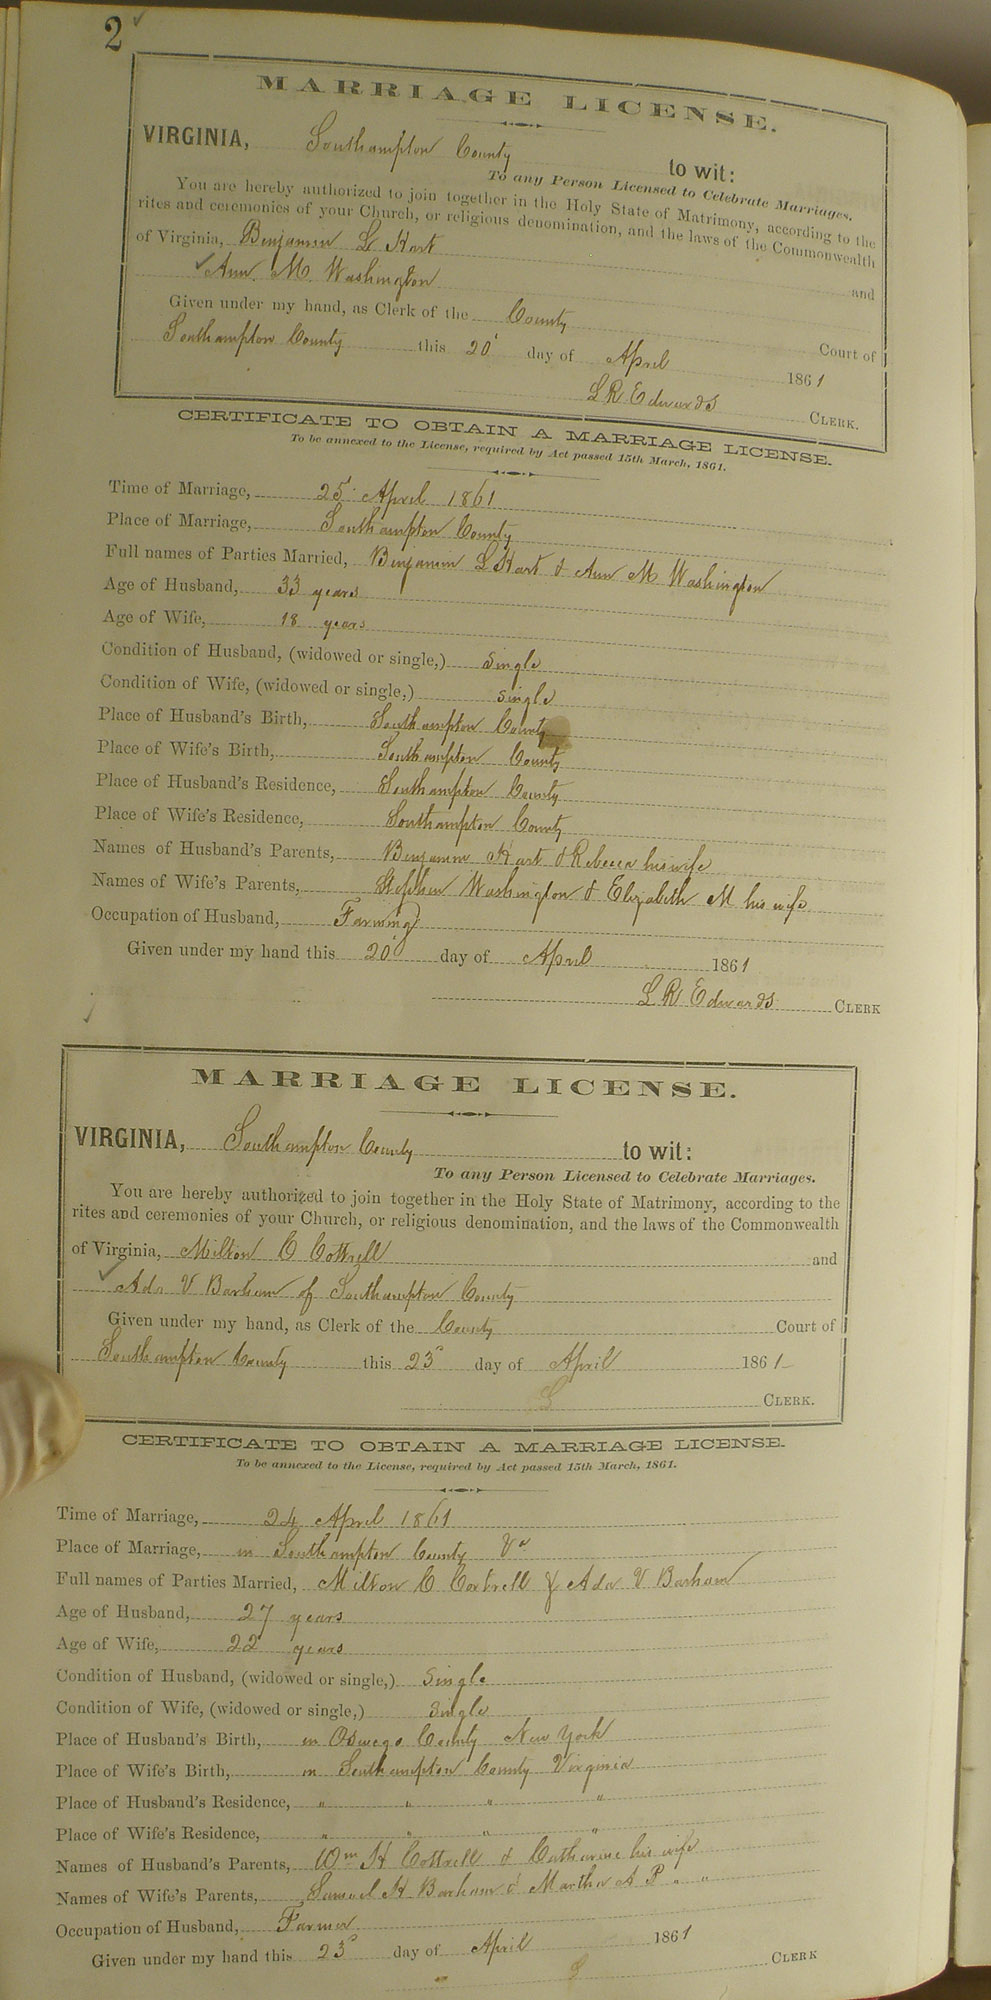 2
MARRIAGE LICENSE.
VIRGINIA, Southampton County to wit:
To any Person Licensed to Celebrate Marriages.
You are hereby authorized to join together in the Holy State of Matrimony, according to the
rites and ceremonies of your Church, or religious denomination, and the laws of the Commonwealth
of Virginia, Benjamin L Hart and
Ann M. Washington
Given under my hand, as Clerk of the County Court of
Southampton County this 20 day of April 1861
L R Edwards CLERK.
CERTIFICATE TO OBTAIN A MARRIAGE LICENSE.
To be annexed to the License, required by Act passed 15th March, 1861.
Time of Marriage, 25 April 1861
Place of Marriage, Southampton County
Full names of Parties Married, Benjamin L Hart & Ann M Washington
Age of Husband, 33 years
Age of Wife, 18 years
Condition of Husband, (widowed or single,) single
Condition of Wife, (widowed or single,) single
Place of Husband's Birth, Southampton County
Place of Wife's Birth, Southampton County
Place of Husband's Residence, Southampton County
Place of Wife's Residence, Southampton County
Names of Husband's Parents, Benjamin Hart & Rebecca his wife
Names of Wife's Parents, Stephen Washington & Elizabeth M his wife
Occupation of Husband, Farming
Given under my hand this 20 day of April 1861
L R Edwards CLERK
MARRIAGE LICENSE.
VIRGINIA, Southampton County to wit:
To any Person Licensed to Celebrate Marriages.
You are hereby authorized to join together in the Holy State of Matrimony, according to the
rites and ceremonies of your Church, or religious denomination, and the laws of the Commonwealth
of Virginia, Milton C Cottrell and
Ada V Barham of Southampton County
Given under my hand, as Clerk of the County Court of
Southampton County this 23 day of April 1861
L CLERK.
CERTIFICATE TO OBTAIN A MARRIAGE LICENSE.
To be annexed to the License, required by Act passed 15th March, 1861.
Time of Marriage, 24 April 1861
Place of Marriage, in Southampton County Va
Full names of Parties Married, Milton C Cottrell & Ada V Barham
Age of Husband, 27 years
Age of Wife, 22 years
Condition of Husband, (widowed or single,) Single
Condition of Wife, (widowed or single,) Single
Place of Husband's Birth, in Oswego County New York
Place of Wife's Birth, in Southampton County Virginia
Place of Husband's Residence, " " " "
Place of Wife's Residence, " " " "
Names of Husband's Parents, Wm H Cottrell & Catharine his wife
Names of Wife's Parents, Samuel H Barham & Martha A P " "
Occupation of Husband, Farmer
Given under my hand this 23 day of April 1861
L CLERK